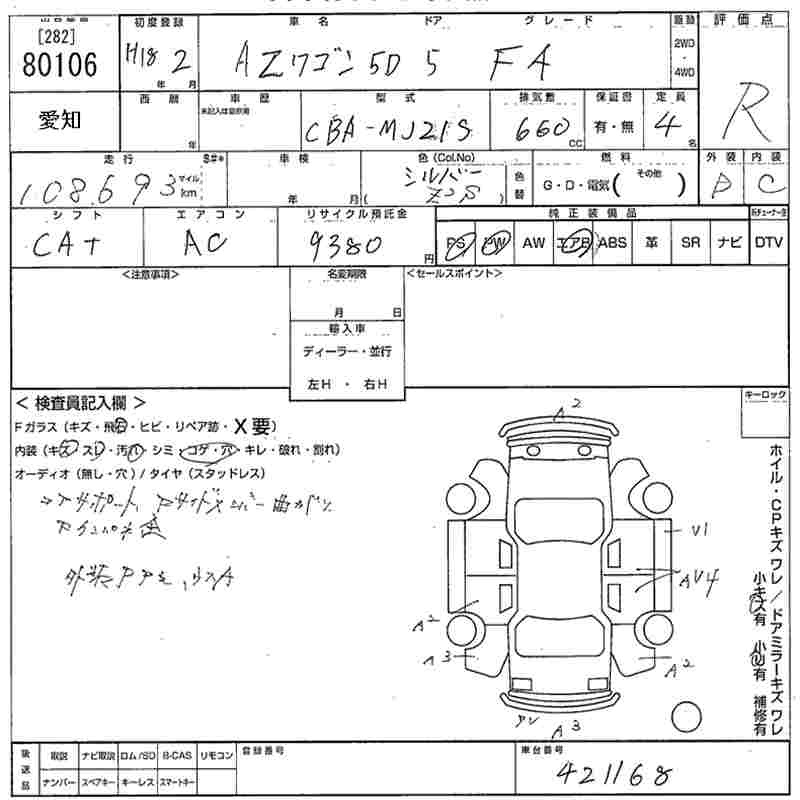 出品番号 初度登録 車名 ドア グレード 駆動 評価点
[282]
80106 H18 2 AZワゴン 5D 5 FA 2WD 4WD R
年 月
西暦 車歴 型式 排気量 保証書 定員
愛知 未記入は自家用 CBA-MJ21S 660 有・無 4
年 CC 名
走行 S#* 車検 色(Col.No) 燃料 外装 内装
108,693 マイル km 年 月 シルバー Z2S 色替 G・D・電気( その他 ) D C
シフト エアコン リサイクル預託金 純正装備品
CAT AC 9380 円 PS PW AW エアB ABS 革 SR ナビ DTV
<注意事項> 名変期限 <セールスポイント>
月 日
輸入車
ディーラー・並行
左H ・ 右H
< 検査員記入欄 > キーロック
Fガラス (キズ・飛石・ヒビ・リペア跡・X要)
内装 (キズ・スレ・汚れ・シミ・コゲ・穴・キレ・破れ・割れ)
オーディオ (無し・穴) / タイヤ (スタッドレス)
外装
A2
V1
AV4
A2
A3 A2
A3
ホイル・CPキズ ワレ / ドアミラーキズ ワレ
小キズ有 小凹有 補修有
後送品 取説 ナビ取説 ロム/SD B-CAS リモコン 登録番号 車台番号
ナンバー スペアキー キーレス スマートキー 421168